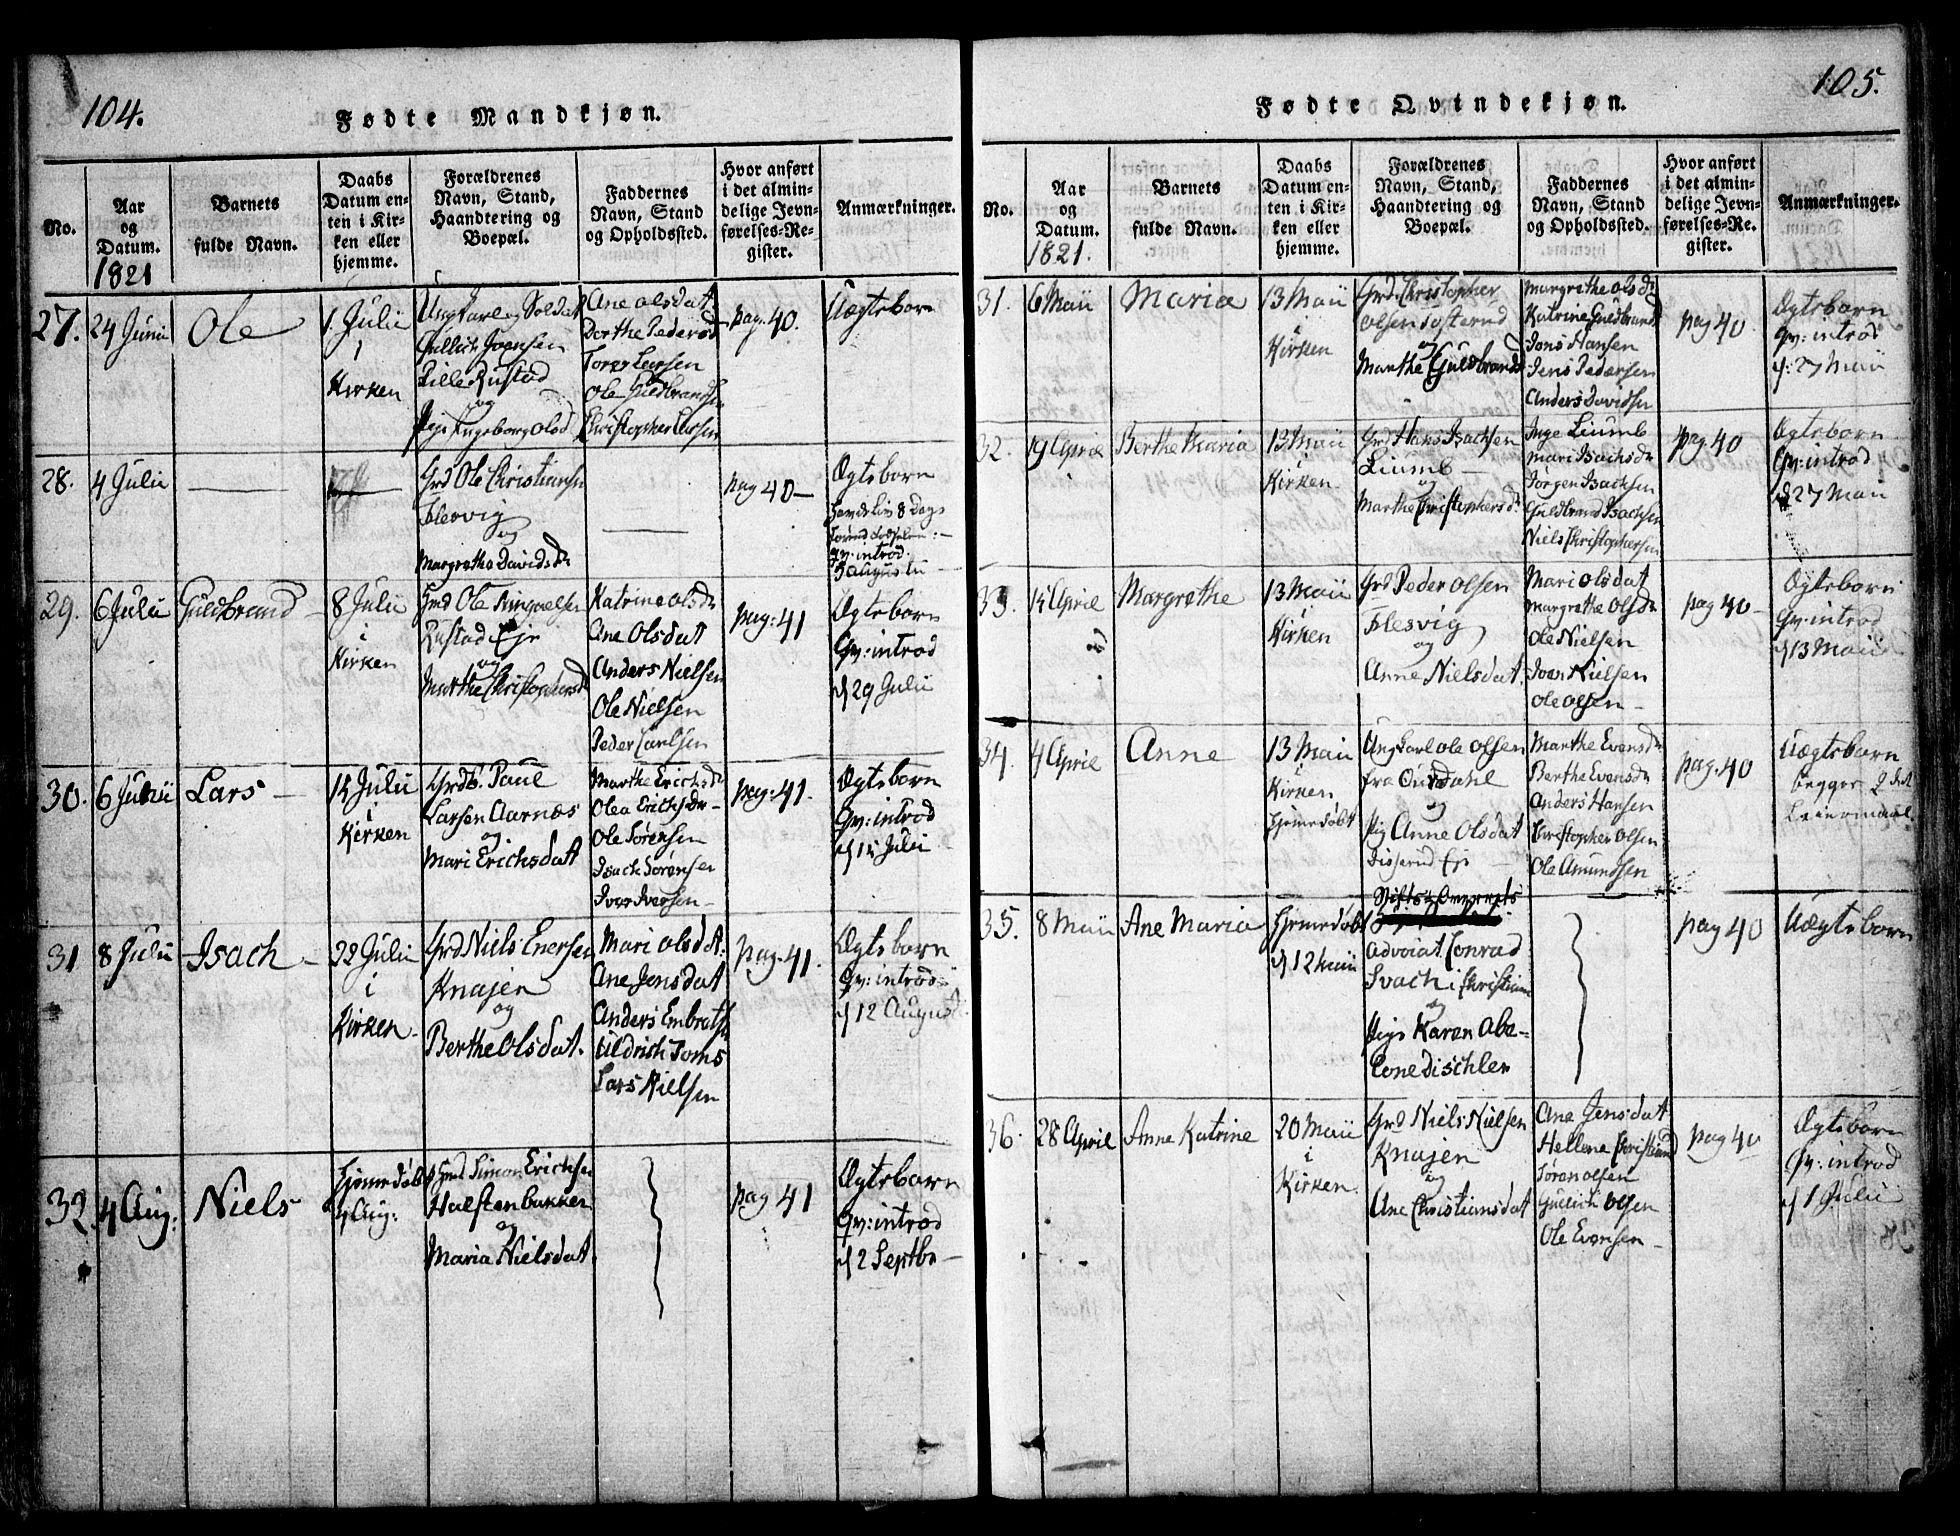 104.
Fødte Mandkjøn.
No.
Aar
og
Datum.
1821
Barnets
fulde Navn.
Daabs
Datum en-
ten i Kir-
ken eller
hjemme.
Forældrenes
Navn, Stand,
Haandtering og
Boepæl.
Faddernes
Navn, Stand
og Opholdssted.
Hvor anført
i det almin-
delige Jevn-
førelses-Re-
gister.
Anmærkninger.
27.
24 Juni
Ole
1. Julii
i
Kirken
Ungkarl og Soldat
Gullich Joensen
Lille Rustad
og
Pige Ingeborg Olsd
Ane Olsdat
Dorthe Pedersd
Larsen
Ole Guldbransen
Christopher Larsen
pag. 40.
Uægteborn
28.
4 Julii
Grd Ole Christiansen
Flesvig
og
Margrethe Davidsdr
pag 40
Ægteborn
8 Dage
Gv: introd:
5 Augusti
29.
6 Julii
Guldbrand
8 Julii
i
Kirken
Ole
Rustad Eje
og
Marthe Christophersd
Katrine Olsdr
Ane Olsdat
Anders Nielsen
Ole Nielsen
Peder Carlsen
pag: 41
Ægteborn
Gv: introd
d 29 Julii
30.
6 Julii
Lars
15 Julii
i
Kirken
Grdb. Paul
Larsen Aarnæs
og
Mari Erichsdat
Marthe Erichsdr
Olea Erichsdr
Ole Sørensen
Isach Sørensen
Iver Iversen
pag: 41.
Ægteborn
Gv: introd
d 15 Julii
31
8 Julii
Isach
22 Julii
i
Kirken
Grd Niels Enersen
Knajen
og
Berthe Olsdat.
Mari Olsdat.
Ane Jensdat
Anders Embretsen
Uldrich Toms
Lars Nielsen
pag. 41.
Ægteborn
Gv: introd:
d 12 August
32.
4 Aug:
Niels
Hjemedøbt
d Aug:
Grd Simon Erichsen
Halstenbakken
og
Maria Nielsdat.
pag 41
Ægteborn
Gv: introd
d 2 Septbr
105.
Fødte Qvindekjøn.
No.
Aar
og
Datum.
1821.
Barnets
fulde Navn.
Daabs
Datum en-
ten i Kir-
ken eller
hjemme.
Forældrenes
Navn, Stand,
Haandtering og
Boepæl.
Faddernes
Navn, Stand
og Opholdssted.
Hvor anført
i det almin-
delige Jevn-
førelses-Re-
gister.
Anmærkninger.
31.
6 Maii
Maria
13 Maii
i
Kirken
Grd. Christopher
Olsen
og
Marthe Guldbrandsd
Margrethe Olsdr
Katrine Guldbrandsd
Jens Hansen
Jens Pedersen
Anders Davidsen
pag 40
Ægteborn
Gv: introd
d: 27 Maii
32.
19 April
Berthe Maria
13 Maii
i
Kirken
Grd Hans Isachsen
Liumb
og
Marthe Christophersdr
Inge Liumb
Mari Isachsdr
Jørgen Isachsen
Guldbrand Isachsen
Niels Christophersen
pag. 40
Ægteborn
Gv: introd
d 27 Maii
33.
15 April
Margrethe
13 Maii
i
Kirken
Grd Peder Olsen
Flesvig
og
Anne Nielsdat.
Mari Olsdat
Margrethe Olsdr
Ole Nielsen
Joen Nielsen
Ole Olsen
pag 40
Ægteborn
Gv: introd
d 13 Maii
34.
4 April
Anne
13 Maii
i
Kirken
Hjemedøbt
Ungkarl Ole Olsen
fra
og
Pig Anne Olsdat
Eje
Marthe Evensdr
Berthe Evensdr
Anders Hansen
Christopher Olsen
Ole Amundsen
pag. 40
Uægteborn
begges 2det
Leiermaal.
35.
8 Maii
Ane Maria
Hjemedøbt
d 12 Maii
Stifts Overrets
Advocat Conrad
Svach i Christiania
og
Pige Karen Abe-
lone Dischler
pag 40
Uægteborn
36.
28 April
Anne Katrine
20 Maii
i
Kirken
Grd Niels Nielsen
Knajen
og
Ane Christiansdat
Ane Jensdat
Hellene Christiansd
Søren Olsen
Gullich Olsen
Ole Evensen
pag 40
Ægteborn
Gv: introd
d 1 Julii